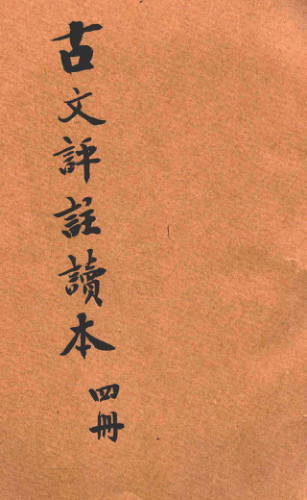 古文評註讀本
四冊